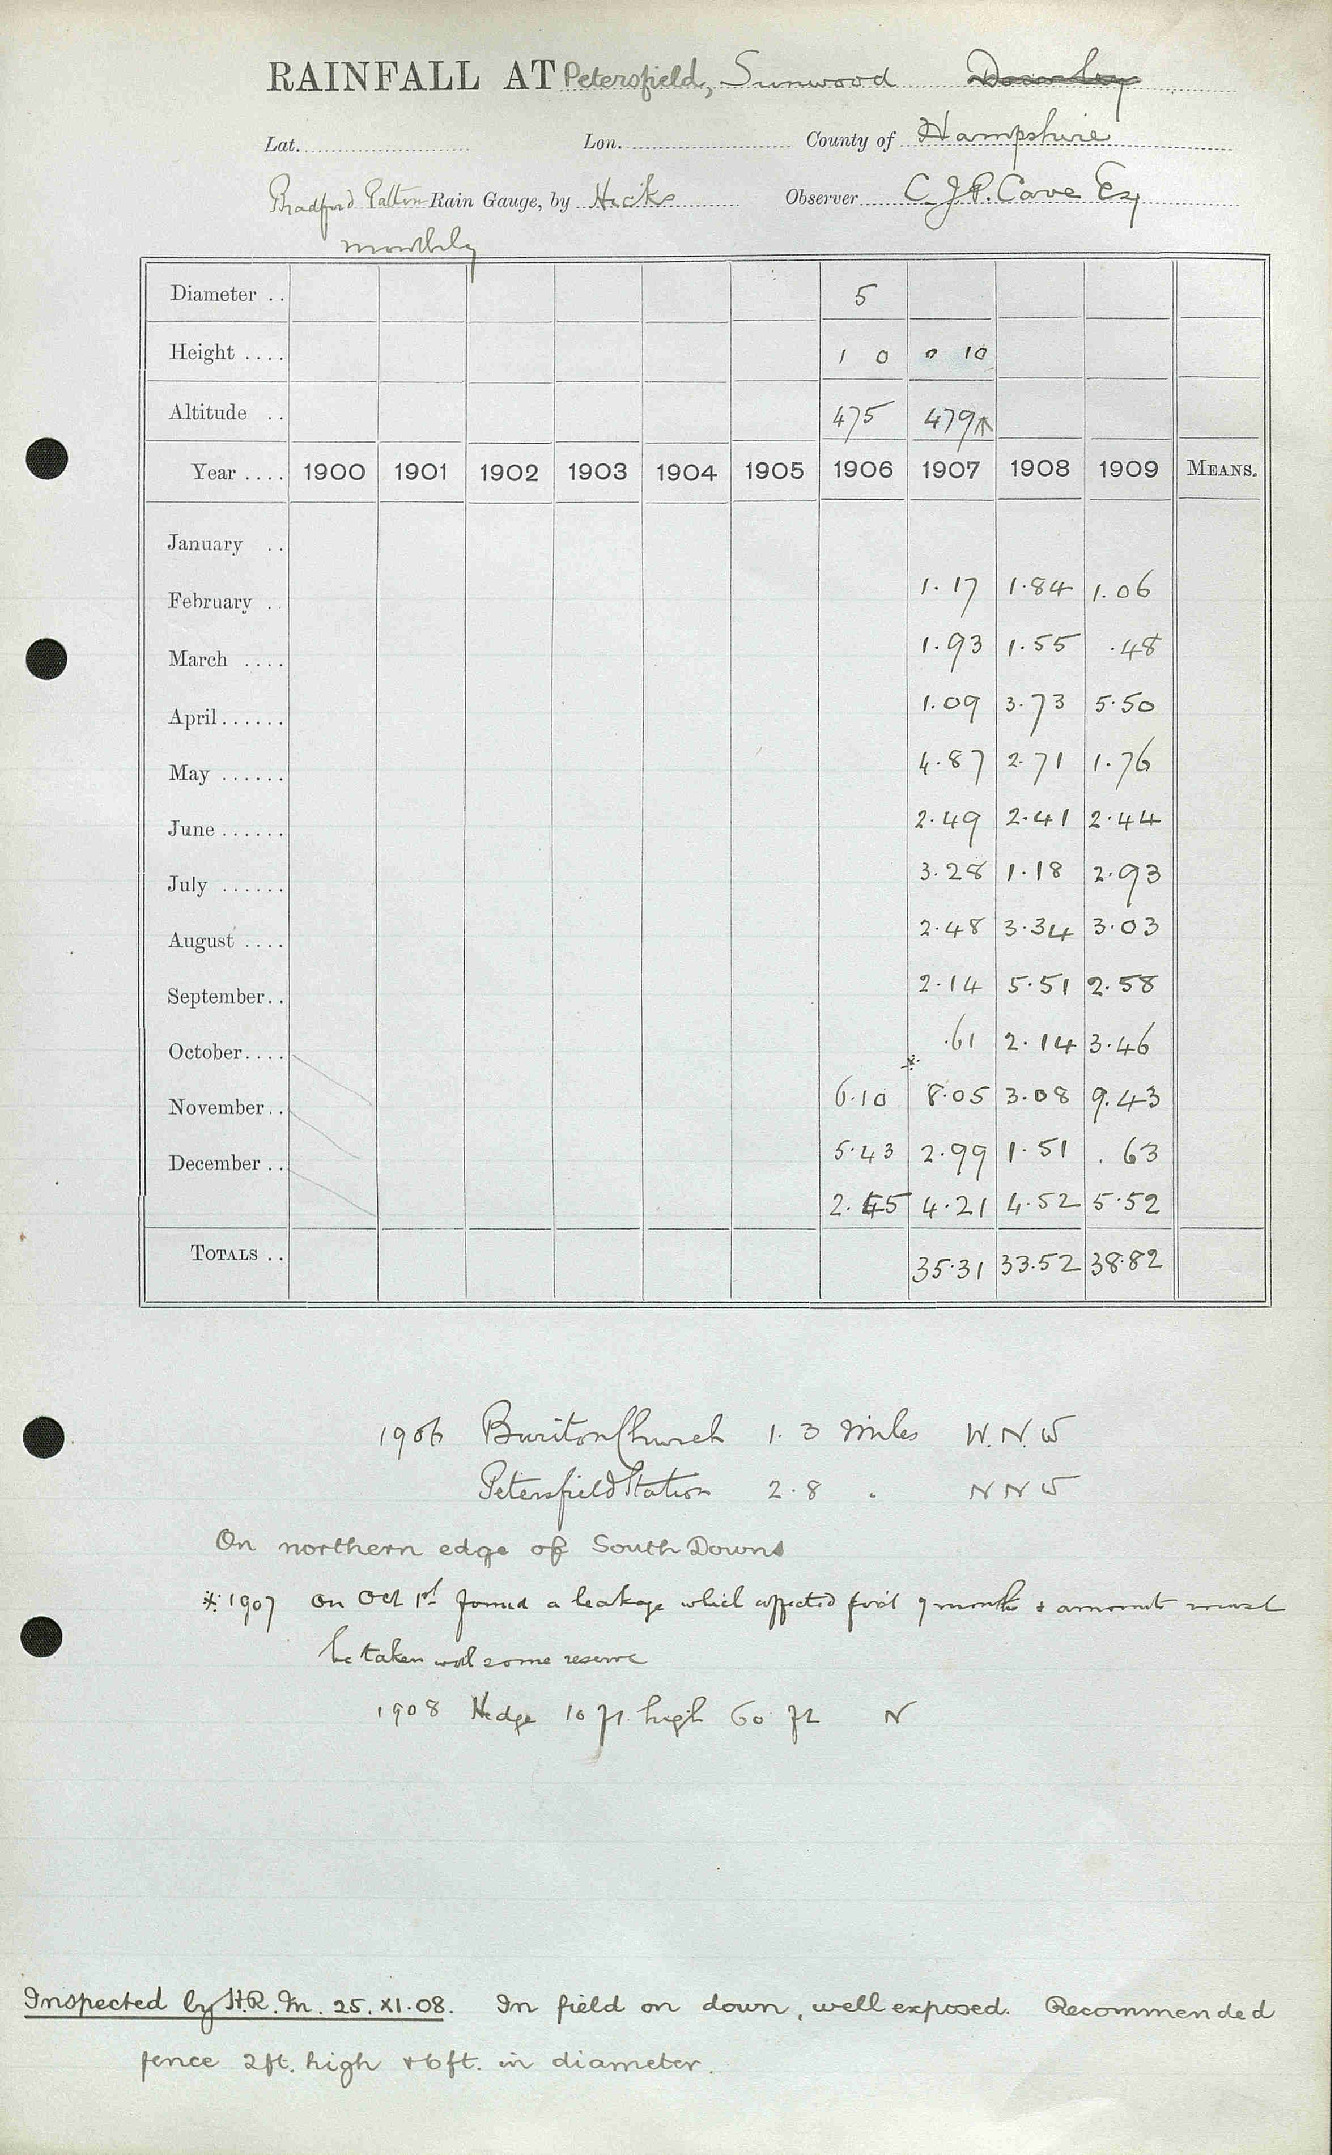 RAINFALL AT Petersfield, Sunwood
Lat. Lon. County of Hampshire
Bradford Pattern Rain Gauge, by Hicks Observer C.J.P. Cave Esq
monthly
Diameter .. 5
Height .... 1 0 0 10
Altitude .. 475 479↑
Year .... 1900 1901 1902 1903 1904 1905 1906 1907 1908 1909 MEANS.
January .. 1.17 1.84 1.06
February .. 1.93 1.55 .48
March .... 1.09 3.73 5.50
April...... 4.87 2.71 1.76
May ...... 2.49 2.41 2.44
June ...... 3.28 1.18 2.93
July ...... 2.48 3.34 3.03
August .... 2.14 5.51 2.58
September.. .61 2.14 3.46
October.... 6.10 * 8.05 3.08 9.43
November .. 5.43 2.99 1.51 .63
December .. 2.45 4.21 4.52 5.52
TOTALS .. 35.31 33.52 38.82
1906 Buriton Church 1.3 Miles W.N.W
Petersfield Station 2.8 . N N W
On northern edge of South Downs
* 1907 On Oct 1st found a leakage which affected first 9 months & amounts must
be taken with some reserve
1908 Hedge 10 ft. high 60 ft N
Inspected by H.R.M. 25.XI.08. In field on down, well exposed. Recommended
fence 2ft. high & 6ft. in diameter.